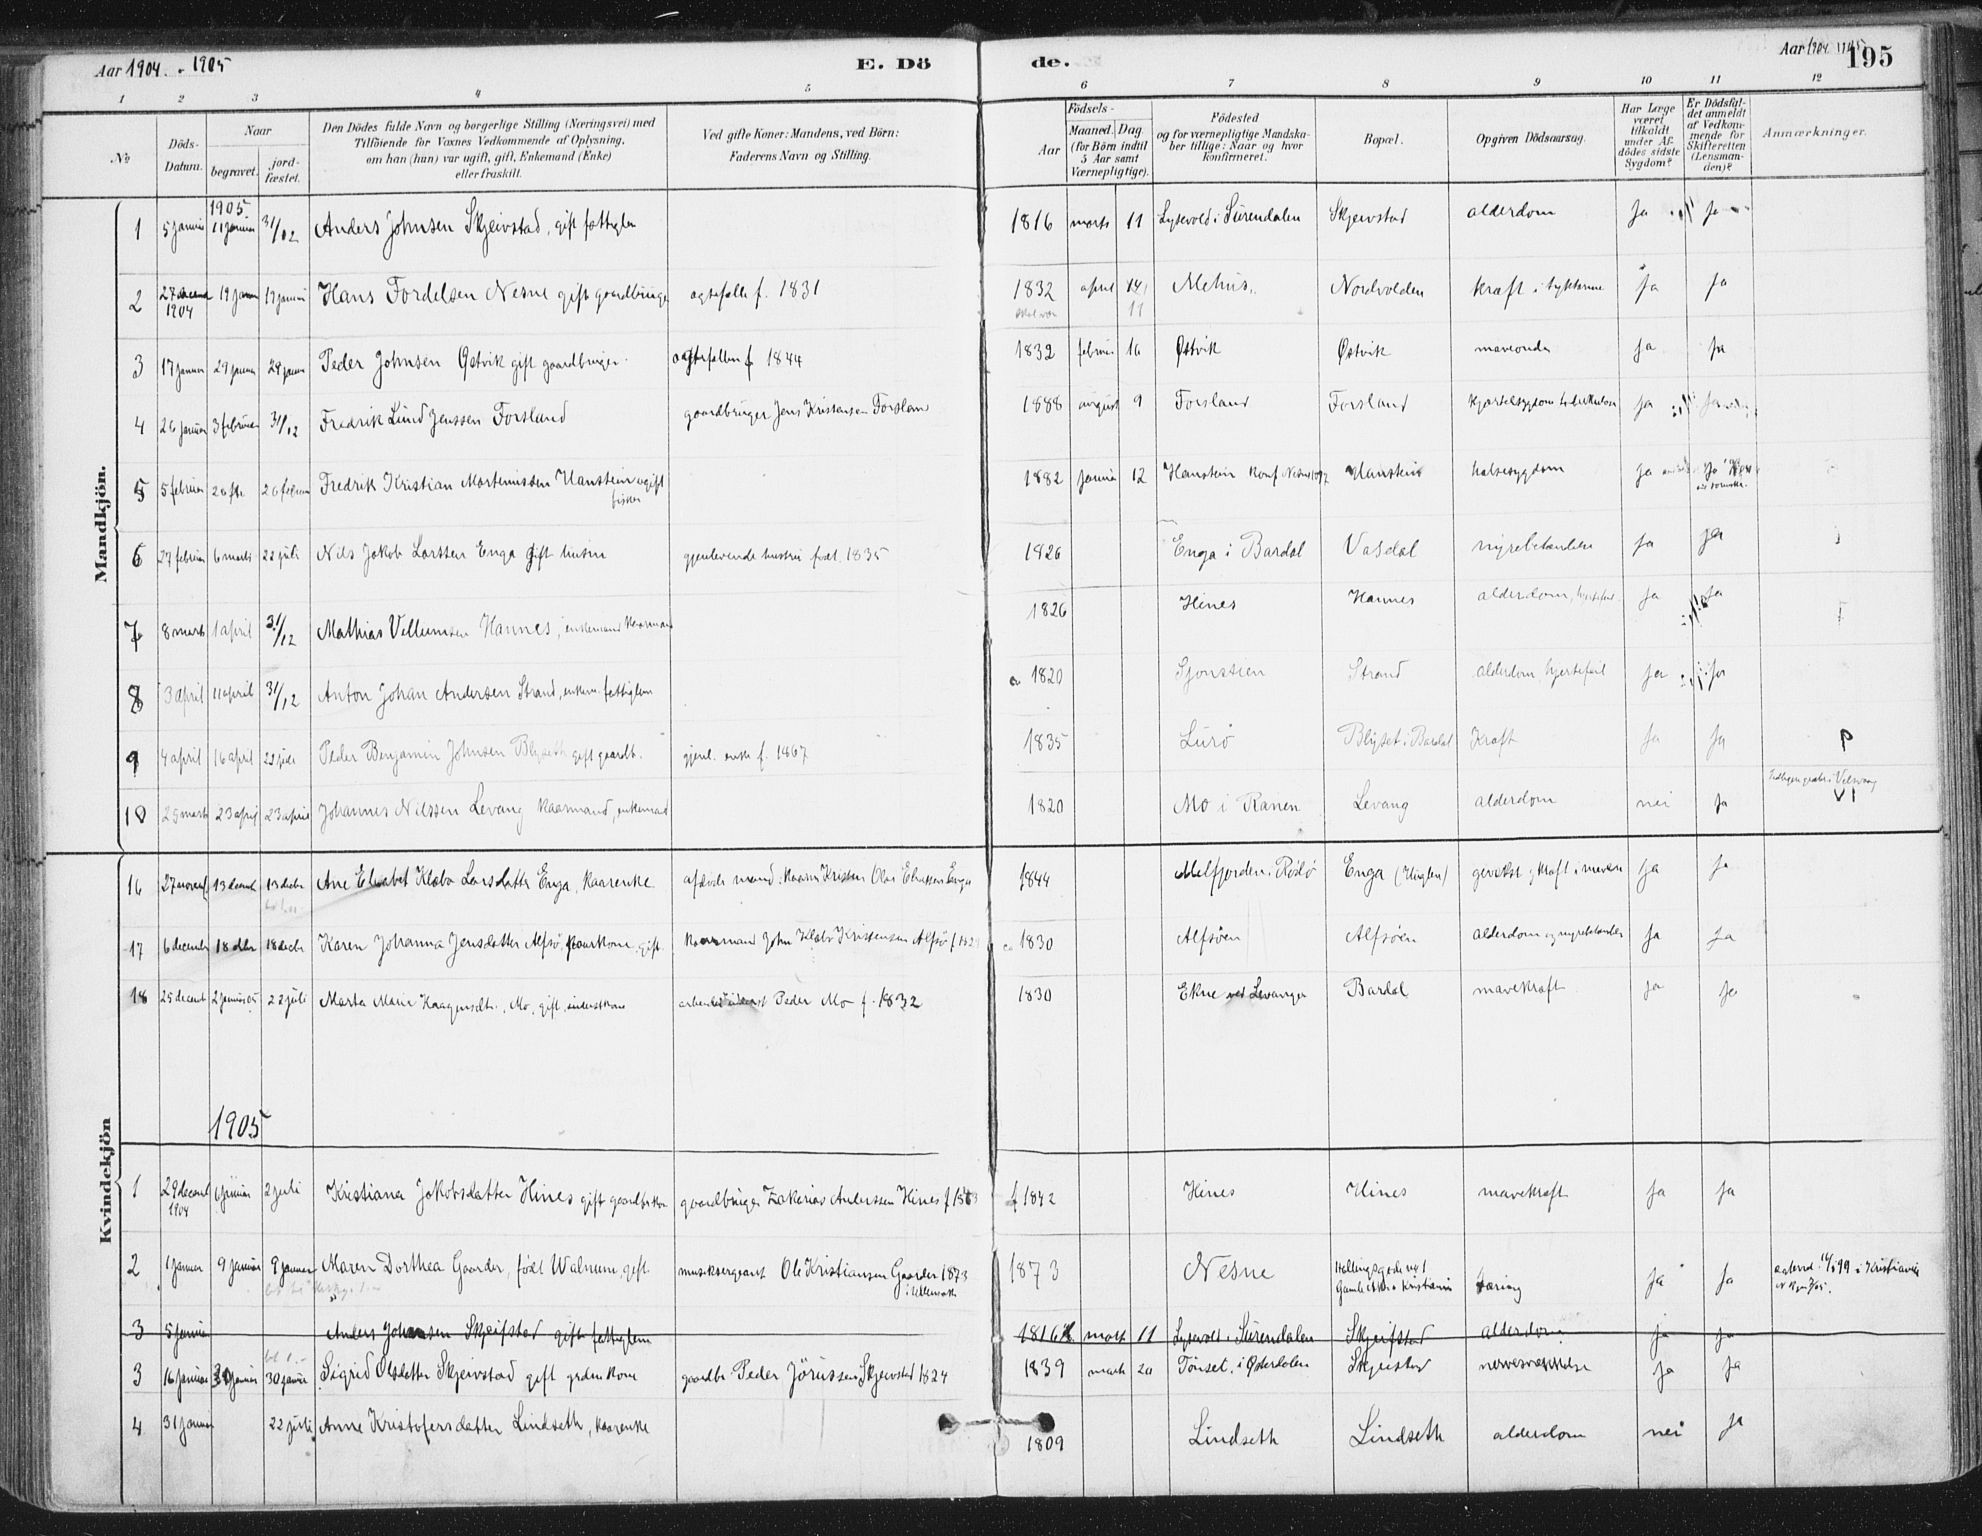 Aar 1904 - 1905 E. Dö de. Aar 1904 1905 195
1 2 3 4 5 6 7 8 9 10 11 12
No
Döds-Datum.
Naar
begravet. jord-fæstet.
Den Dödes fulde Navn og borgerlige Stilling (Næringsvei) med
Tilföiende for Voxnes Vedkommende af Oplysning,
om han (hun) var ugift, gift, Enkemand (Enke)
eller fraskilt.
Ved gifte Koner: Mandens, ved Börn:
Faderens Navn og Stilling.
Födsels-
Aar
Maaned. Dag
(for Börn indtil
5 Aar samt
Værnepligtige).
Födested
og for værnepligtige Mandska-
ber tillige: Naar og hvor
konfirmeret.
Bopæl.
Opgiven Dödsaarsag.
Har Læge
været
tilkaldt
under Af-
dödes sidste
Sygdom?
Er Dödsfal-
det anmeldt
af Vedkom-
mende for
Skifteretten
(Lensman-
den)?
Anmærkninger.
Mandkjön.
1905
1 5 januar 11 januar 31/12 Anders Johnsen Skjeivstad, gift fattiglem 1816 marts 11 Lysevold i Surendalen Skjeivstad alderdom ja ja
2 27 decemb 1904 19 januar 19 januar Hans Fordelsen Nesne gift gaardbruger ægtefælle f. 1831 1832 april 14 Mehus Nordvolden kræft i tyktarme ja ja
11
3 17 januar 29 januar 29 januar Peder Johnsen Østvik gift gaardbruger ægtefællen f 1844 1832 februar 16 Østvik Østvik maveonde ja ja
4 26 januar 3 februar 31/12 Fredrik Lind Jenssen Forsland gaardbruger Jens Kristensen Forsland 1888 august 9 Forsland Forsland kjertelsygdom tuberkulose ja ja
5 5 februar 20 feb 20 februar Fredrik Kristian Martinussen Hanstein ugift fisker 1882 januar 12 Hanstein Konf Nesne 1897 Hanstein halsesygdom ja ja
6 27 februar 6 marts 22 juli Nils Jakob Larssen Enga gift husm gjenlevende hustru født 1835 1826 Enga i Bardal Vasdal nyrebetændelse ja ja
7 8 marts 1 april 31/12 Mathias Vellumsen Hannes, enkemand kaarmand 1826 Hines Hannes alderdom, hjertefeil ja ja
8 3 april 11 april 31/12 Anton Johan Andersen Strand, enkem. fattiglem 1820 Sjonstien Strand alderdom, hjertefeil ja ja
9 4 april 16 april 22 juli Peder Benjamin Johnsen Blyseth gift gaardb. gjenl. enke f. 1867 1835 Lurø Blyset i Bardal Kræft ja ja
10 25 marts 23 april 23 april Johannes Nilssen Levang kaarmand, enkemand 1820 Mo i Ranen Levang alderdom nei ja
Kvindekjön
16 27 novemb 13 decemb 13 decbr Ane Elisabet Klæbo Larsdatter Enga, kaarenke afdøde mand: kaarm Kristen Olai Eliassen Enga 1844 Melfjorden i Rødø Enga (Huglen) gevækst, kræft i maven ja ja
17 6 december 18 dbr 18 decbr Karen Johanna Jensdatter Alfsø, kaarkone gift kaarmand John Klæbo Kristensen Alfsø 1830 Alfsøen Alfsøen alderdom og nyrebetændelse ja ja
18 25 decemb 2 januar 05 22 juli Marta Marie Haagensdtr. Mo, gift, inderstkone arbeider inderst Peder Mo f. 1832 1830 Ekne ved Levanger Bardal mavekræft ja ja
1905
1 29 decemb 1904 6 januar 2 juli Kristiana Jakobsdatter Hines gift gaardbrkone gaardbruger Zakarias Anderssen Hines f 1842 Hines Hines mavekræft ja ja
2 1 januar 9 januar 9 januar Maren Dorthea Gaarder, født Walnum, gift musiksergeant Ole Kristiansen Gaarder 1873 i Ullensaker 1873 Nesne Hellingsgade no 1 Gamle Aker Kristiania tæring ja ja
3 5 januar Anders Johansen Skjeifstad gift fattiglem 1816 mats 11 Lysevold i Surendalen Skjeifstad alderdom ja ja
3 16 januar 30 januar 30 januar Sigrid Olsdatter Skjeivstad gift grdm kone gaardbr Peder Jørussen Skjeivstad 1824 1839 marts 20 Tønset i Østerdalen Skjeivstad nervesvækkelse ja ja
4 31 januar 22 juli Anne Kristofersdatter Lindseth, kaarenke 1809 Lindseth Lindseth alderdom nei ja